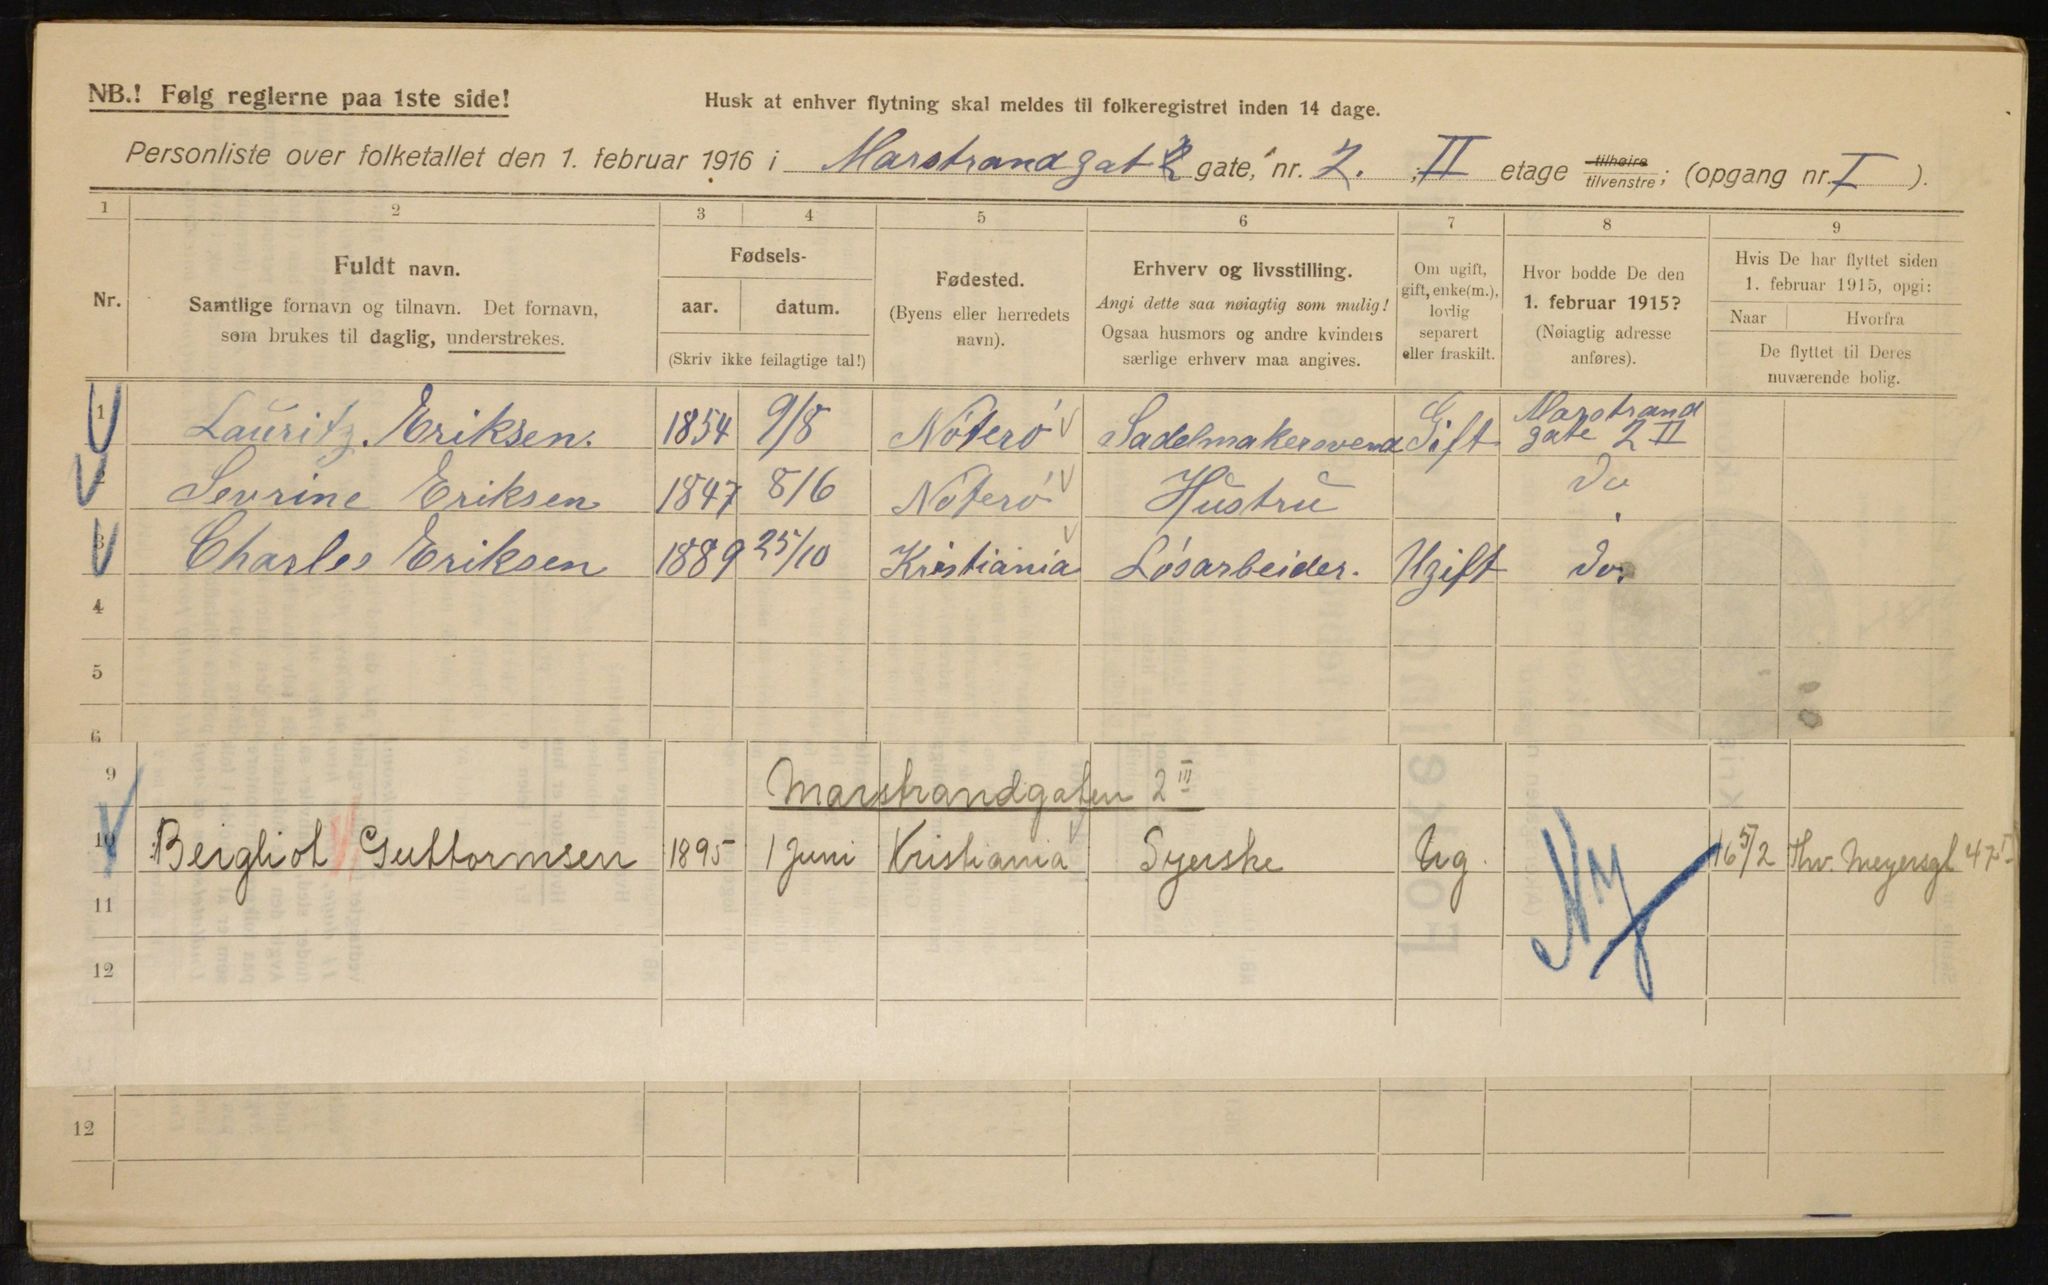 NB.! Følg reglerne paa 1ste side!
Husk at enhver flytning skal meldes til folkeregistret inden 14 dage.
Personliste over folketallet den 1. februar 1916 i Marstrandgat gate, nr. 2. , II etage tilhøire tilvenstre; (opgang nr. I ).
1 2 3 4 5 6 7 8 9
Nr.
Fuldt navn.
Samtlige fornavn og tilnavn. Det fornavn,
som brukes til daglig, understrekes.
Fødsels-
aar. datum.
(Skriv ikke feilagtige tal!)
Fødested.
(Byens eller herredets
navn).
Erhverv og livsstilling.
Angi dette saa nøiagtig som mulig!
Ogsaa husmors og andre kvinders
særlige erhverv maa angives.
Om ugift,
gift, enke(m.),
lovlig
separert
eller fraskilt.
Hvor bodde De den
1. februar 1915?
(Nøiagtig adresse
anføres).
Hvis De har flyttet siden
1. februar 1915, opgi:
Naar Hvorfra
De flyttet til Deres
nuværende bolig.
1 Lauritz. Eriksen. 1854 9/8 Nøterø Sadelmakersvend Gift Marstrand
gate 2 II
2 Sevrine Eriksen 1847 8/6 Nøterø Hustru Do
3 Charles Eriksen 1889 25/10 Kristiania Løsarbeider. Ugift Do.
4
5
6
9 Marstrandgaten 2 III
10 Bergliot Guttormsen 1895 1 Juni Kristiania Syerske Ug. Ny 16 5/2 Thv. Meyersgt 47
11
12
12